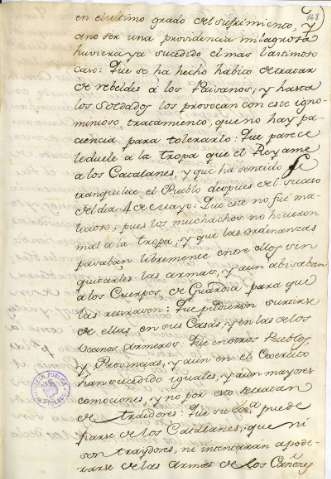 en el ultimo grado del sufrimiento, y
a no ser una providencia milagrosa
huviera ya sucedido el mas lastimoso
caso: Que se ha hecho habito de tratar
de rebeldes á los Paisanos, y hasta
los soldados los provocan con este igno-
minioso tratamiento, que no hay pa-
ciencia para tolerarlo: Que parece
le duele á la tropa que el Rey ame
á los Catalanes, y que ha sentido se
tranquilice el Pueblo despues del suceso
del dia 4 de Mayo: Que este no fue ma-
licioso, pues los muchachos no hicieron
mal á la tropa, y que las ordenanzas
pasaban libremente entre ellos sin
quitarles las armas, y aun abisaban
á los Cuerpos de Guardia para que
las retiraron: Que pudieron surtirse
de ellas en sus Casas, y en las de los
Armeros: Que en otros Pueblos
y Provincias, y aun en el Exercito
han sucedido iguales, y aun mayores
comociones, y no por eso se tratan
de traidores: Que su Exa. puede
fiarse de los Catalanes, que ni
son traydores, ni intentaran apode-
rarse de las armas de los